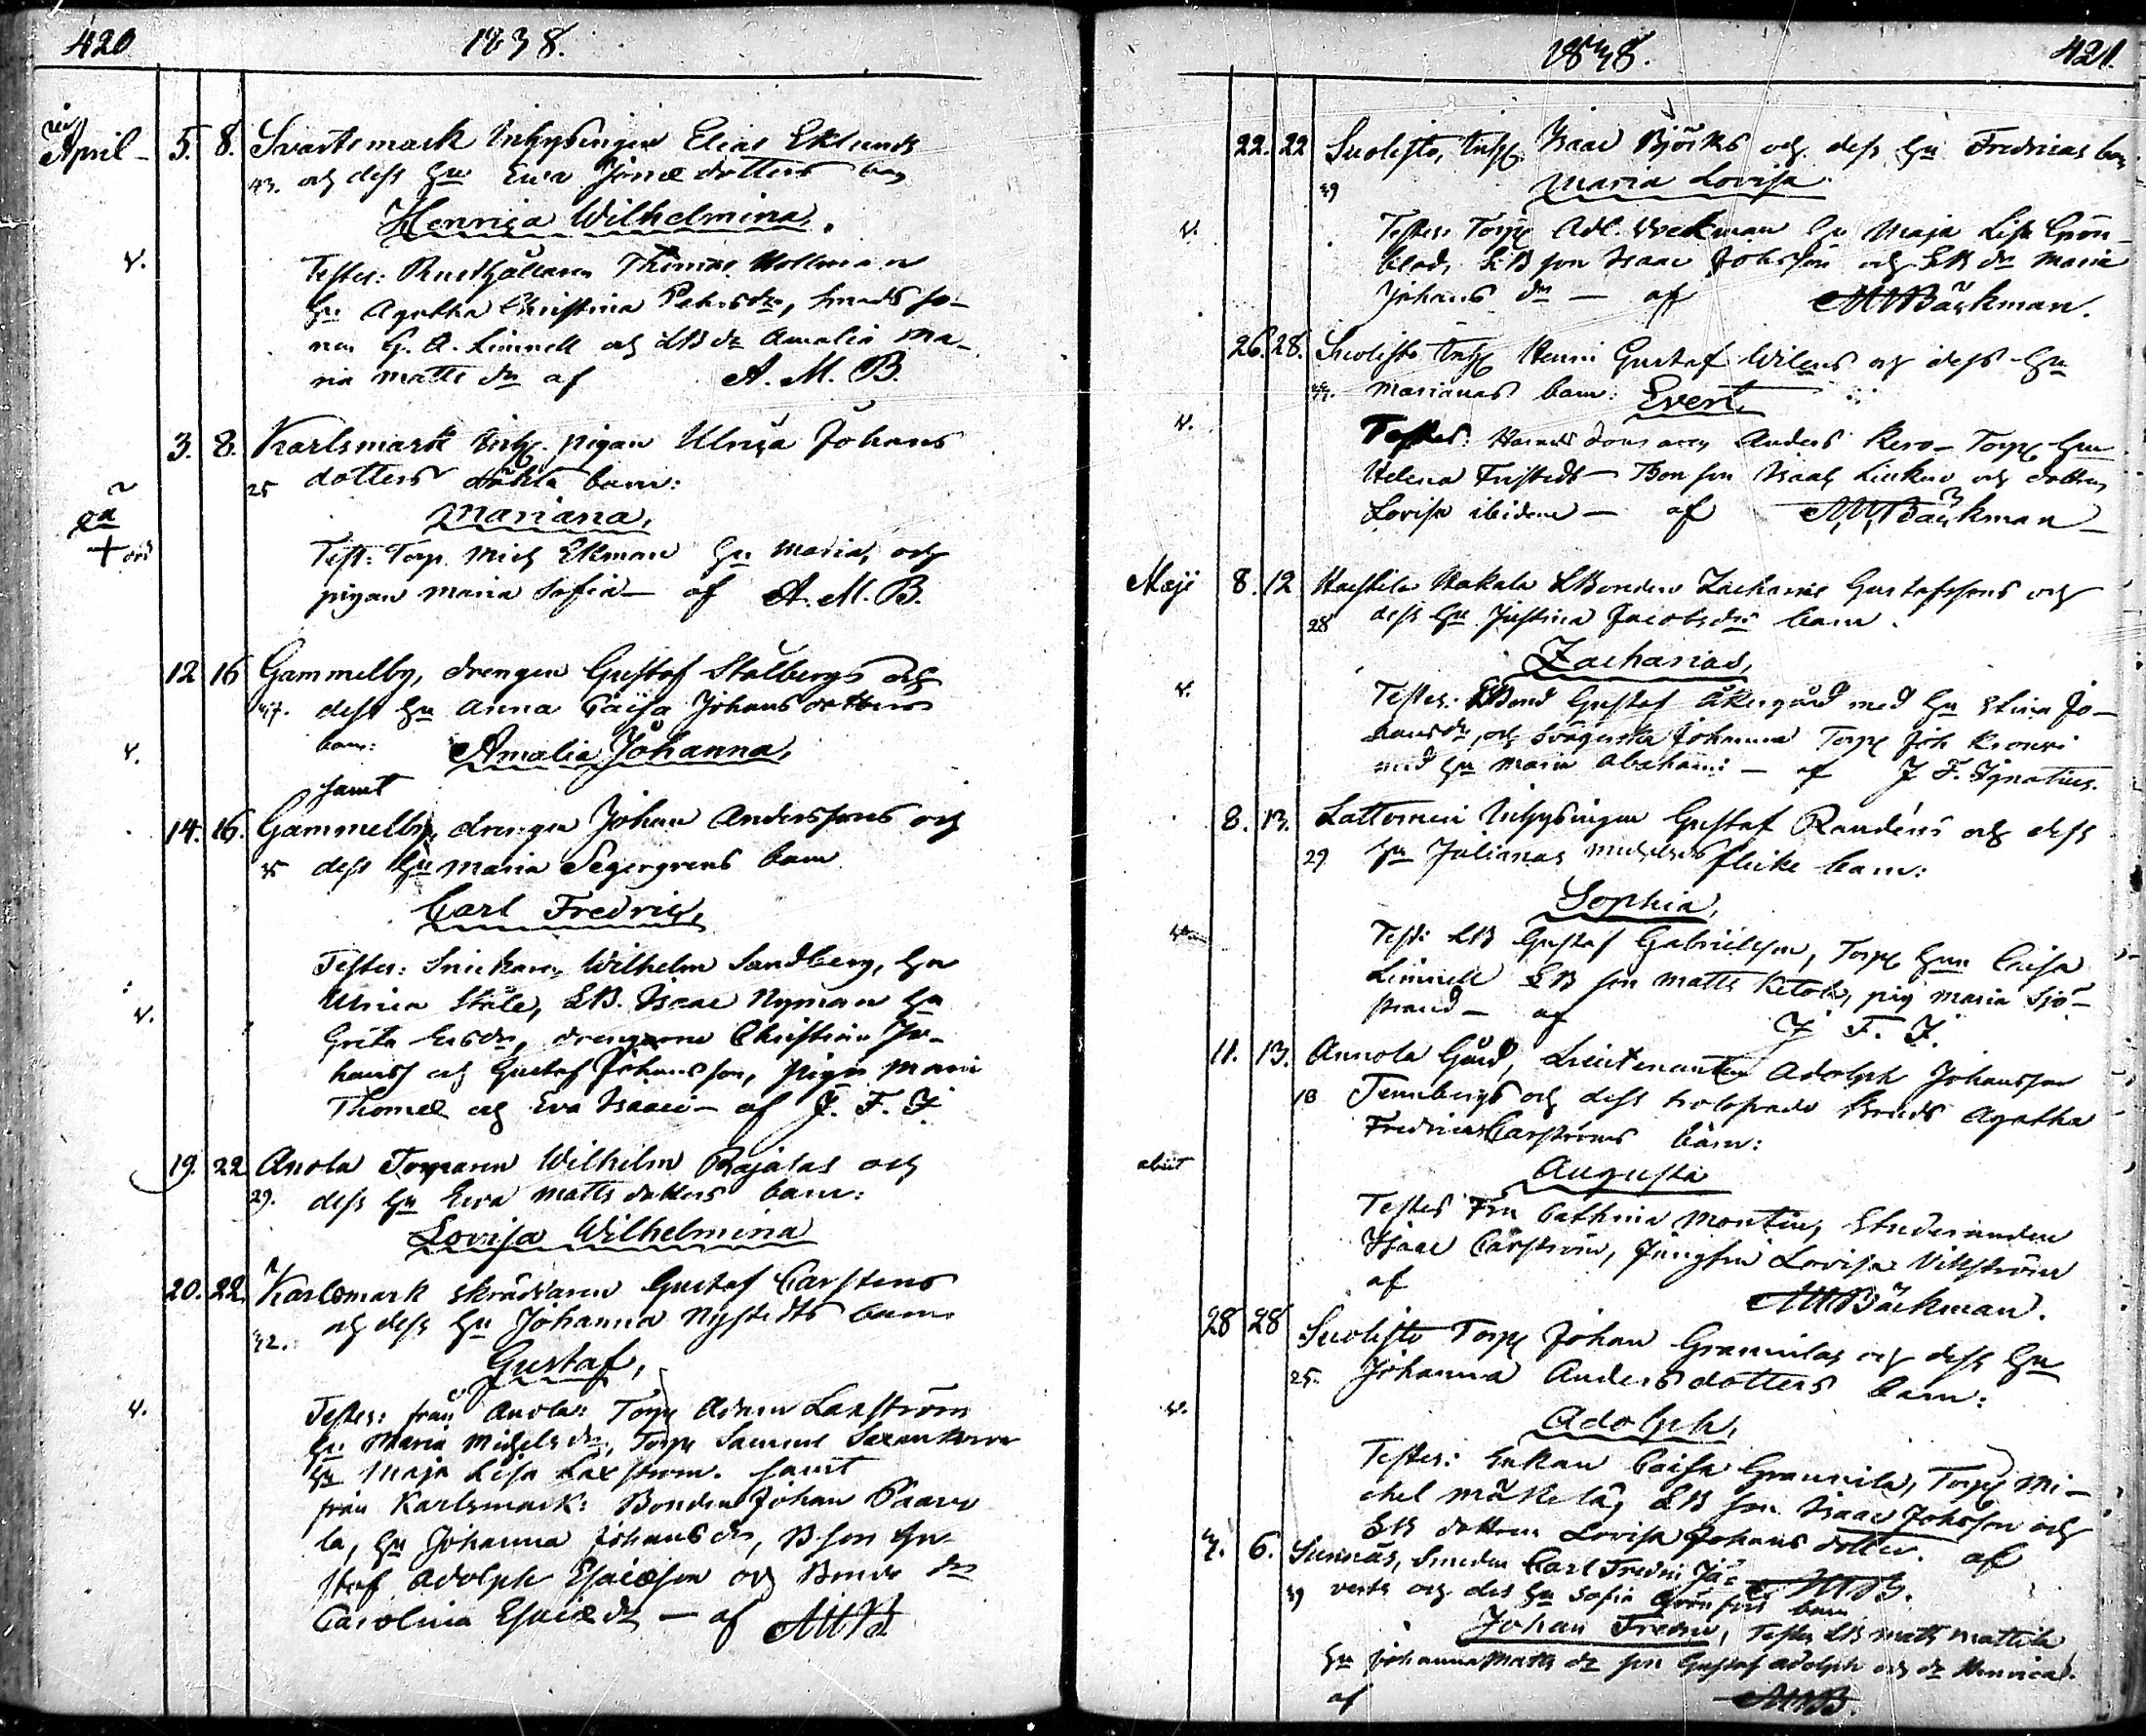 420 1838.
April 5. 8. Svartsmark Inhysingen Elias Eklunds
43. och dess Hu Ewa Jonæ dotters barn
Henrica Wilhelmina.
v. Testes: Rusthållaren Thomas Hollman
Hu Agatha Christina Petersdr, Smeds so-
nen G. A. Limnell och LB dr Amalia Ma-
ria Matts dr af A. M. B.
3. 8. Karlsmark Inhs. pigan Ulrica Johans
25 dotters oäkta barn:
Mariana,
oä + Test: Torp. Mich Ekman Hu Maria, och
pigan Maria Sofia — af A. M. B.
12 16 Gammelby, drengen Gustaf Stålbergs och
dess Hu Anna Caisa Johans dotters
v. barn: Amalia Johanna,
samt
14. 16. Gammelby, drengen Johan Anderssons och
dess Hu Maria Segergrens barn
Carl Fredric,
Testes: Snickaren Wilhelm Sandberg, Hu
Ulrica Ståle, LB. Isaac Nyman Hu
v. Greta Ersdr, drengarne Christian Jo-
hanss och Gustaf Johansson, pigor Maria
Thomæ och Eva Isaaci — af J. F. I.
19. 22 Anola Torparen Wilhelm Rajalas och
29. dess Hu Ewa Matts dotters barn:
Lovisa Wilhelmina
20. 22. Karlsmark skräddaren Gustaf Carstens
32. och dess Hu Johanna Nystedts barn
Gustaf,
v. Testes: från Anola: Torp Adam Laxström
Hu Maria Michelsdr, Torp Samuel
Hu Maja Lisa Laxström. samt
från Karlsmark: Bonden Johan Paavo
la, Hu Johanna Johansdr, B son Gu-
staf Adolph Esaiæson och Bonde dr
Carolina Esaiæ dr — af AMB
1838. 421.
22. 22 Suolisto, Inhs. Isaac Björks och dess Hu Fredricas barn
39 Maria Lovisa
v. Testes: Torp Adl. Hu Maja Lisa Grön-
blad, LB son Isaac Johansson och LB dr Maria
Johans dr — af AMBäckman.
26. 28. Suolisto Inhs Henric Gustaf Wilens och dess Hu
Marianas barn: Evert,
v. Testes: Anders Torp Hu
Helena Fristedt — Bon son Isaac och dottern
Lovisa ibidem — af AMBäckman
Maji 8. 12 Hakala LBonden Zacharias Gustafssons och
28 dess Hu Justina Jacobsdrs barn.
Zacharias,
v. Testes: LBond Gustaf Åkergård med Hu Stina Jo-
hansdr, och Johanna Torp Joh
med Hu Maria Abrahami — af J. F. Ignatius.
8. 13. Lattomeri Inhysingen Gustaf Randéns och dess
29 Hu Julianas Michelsdrs flicke barn:
Sophia,
Test: LB Gustaf Gabrielsson, Torp Hun Caisa
Limnell LB son Matts Ketola, pig Maria Sjö-
strand — af J. F. I.
11. 13. Annola Gård, Lieutenanten Adolph Johansson
Tennbergs och dess Agatha
Fredricas Carströms barn:
abiit Augusta
Testes Fru Cathrina Montin, Studeranden
Isaac Carström, Jungfru Lovisa Vikström
af AMBäckman.
28 28 Suolisto Torp Johan Grannilas och dess Hu
25. Johanna Anders dotters barn:
v. Adolph,
Testes: Enkan Caisa Grannila, Torp Mi-
chel Mäkelä, LB son Isaac Johsson och
LB dottern Lovisa Johans dotter. af
AMB.
6. Sunnäs, Smeden Carl Fredric
39 och des Hu Sofia Grönfors barn
Johan Fredric, Testes LB Matts Mattila
Hu Johanna Matts dr son Gustaf Adolph och dr Henrica.
af AMB.